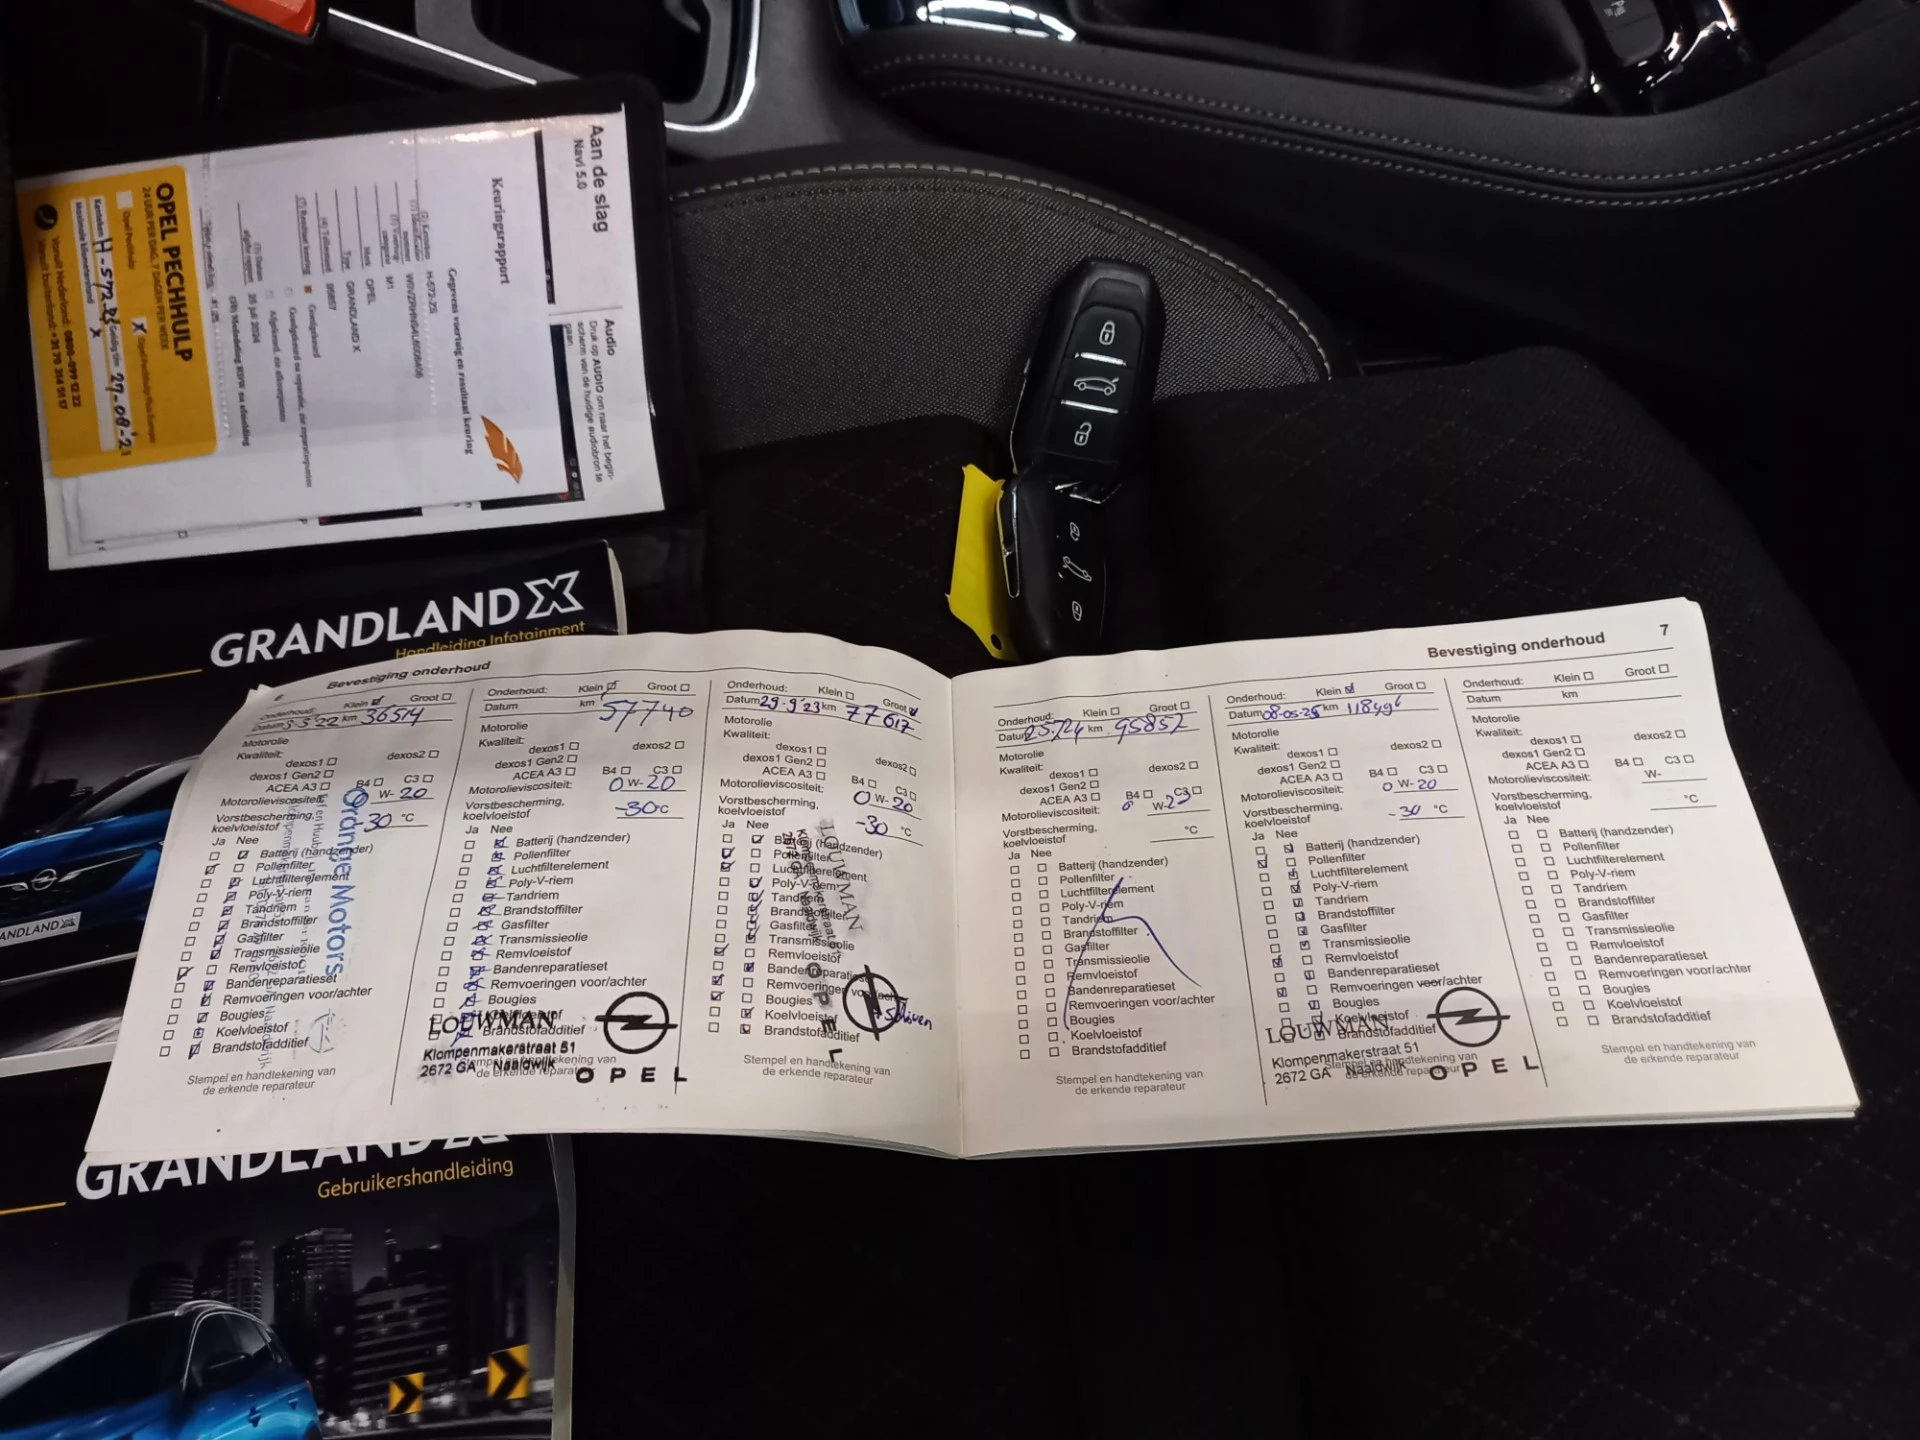 Aan de slag
Navi 5.0
Audio
Druk op AUDIO om naar het begin-
scherm van de huidige audiobron te
gaan.
Keuringsrapport
Gegevens voertuig en resultaat keuring
H-572-ZS
M1
Merk OPEL
Type GRANDLAND X
95857
Goedgekeurd
25 juli 2024
OPEL PECHHULP
24 UUR PER DAG, 7 DAGEN PER WEEK
Opel Pechhulp X
Kenteken H-572-ZS Geldig t/m 27-08-21
Maximale kilometerstand X
Vanuit Nederland: 0800-099 12 22
Vanuit buitenland: +31 70 314 51 17
GRANDLAND X
Handleiding Infotainment
6 Bevestiging onderhoud
Onderhoud: Klein Groot
Datum 3-3-'22 km 36514
Motorolie
Kwaliteit:
dexos1 dexos2
dexos1 Gen2
ACEA A3 B4 C3
Motorolieviscositeit: 0 W- 20
Vorstbescherming,
koelvloeistof -30 °C
Ja Nee
Batterij (handzender)
Pollenfilter
Luchtfilterelement
Poly-V-riem
Tandriem
Brandstoffilter
Gasfilter
Transmissieolie
Remvloeistof
Bandenreparatieset
Remvoeringen voor/achter
Bougies
Koelvloeistof
Brandstofadditief
Motors
Stempel en handtekening van
de erkende reparateur
Onderhoud: Klein Groot
Datum km 57740
Motorolie
Kwaliteit:
dexos1 dexos2
dexos1 Gen2
ACEA A3 B4 C3
Motorolieviscositeit: 0 W- 20
Vorstbescherming,
koelvloeistof -30 °C
Ja Nee
Batterij (handzender)
Pollenfilter
Luchtfilterelement
Poly-V-riem
Tandriem
Brandstoffilter
Gasfilter
Transmissieolie
Remvloeistof
Bandenreparatieset
Remvoeringen voor/achter
Bougies
Koelvloeistof
Brandstofadditief
LOUWMAN
Klompenmakerstraat 51
2672 GA Naaldwijk
OPEL
Stempel en handtekening van
de erkende reparateur
Onderhoud: Klein Groot
Datum 29-9'23 km 77617
Motorolie
Kwaliteit:
dexos1
dexos1 Gen2 dexos2
ACEA A3 B4 C3
Motorolieviscositeit: 0 W- 20
Vorstbescherming,
koelvloeistof -30 °C
Ja Nee
Batterij (handzender)
Pollenfilter
Luchtfilterelement
Poly-V-riem
Tandriem
Brandstoffilter
Gasfilter
Transmissieolie
Remvloeistof
Bandenreparatieset
Remvoeringen voor/achter
Bougies
Koelvloeistof
Brandstofadditief
LOUWMAN
Klompenmakerstraat
2672 GA Naaldwijk
OPEL
Stempel en handtekening van
de erkende reparateur
Bevestiging onderhoud 7
Onderhoud: Klein Groot
Datum 25.7.24 km 95857
Motorolie
Kwaliteit:
dexos1 dexos2
dexos1 Gen2
ACEA A3 B4 C3
Motorolieviscositeit: 0 W-20
Vorstbescherming,
koelvloeistof °C
Ja Nee
Batterij (handzender)
Pollenfilter
Luchtfilterelement
Poly-V-riem
Tandriem
Brandstoffilter
Gasfilter
Transmissieolie
Remvloeistof
Bandenreparatieset
Remvoeringen voor/achter
Bougies
Koelvloeistof
Brandstofadditief
Stempel en handtekening van
de erkende reparateur
Onderhoud: Klein Groot
Datum 08-05-25 km 118496
Motorolie
Kwaliteit:
dexos1 dexos2
dexos1 Gen2
ACEA A3 B4 C3
Motorolieviscositeit: 0 W-20
Vorstbescherming,
koelvloeistof -30 °C
Ja Nee
Batterij (handzender)
Pollenfilter
Luchtfilterelement
Poly-V-riem
Tandriem
Brandstoffilter
Gasfilter
Transmissieolie
Remvloeistof
Bandenreparatieset
Remvoeringen voor/achter
Bougies
Koelvloeistof
Brandstofadditief
LOUWMAN
Klompenmakerstraat 51
2672 GA Naaldwijk
OPEL
Onderhoud: Klein Groot
Datum km
Motorolie
Kwaliteit:
dexos1 dexos2
dexos1 Gen2
ACEA A3 B4 C3
Motorolieviscositeit: W-
Vorstbescherming,
koelvloeistof °C
Ja Nee
Batterij (handzender)
Pollenfilter
Luchtfilterelement
Poly-V-riem
Tandriem
Brandstoffilter
Gasfilter
Transmissieolie
Remvloeistof
Bandenreparatieset
Remvoeringen voor/achter
Bougies
Koelvloeistof
Brandstofadditief
Stempel en handtekening van
de erkende reparateur
GRANDLAND X
Gebruikershandleiding